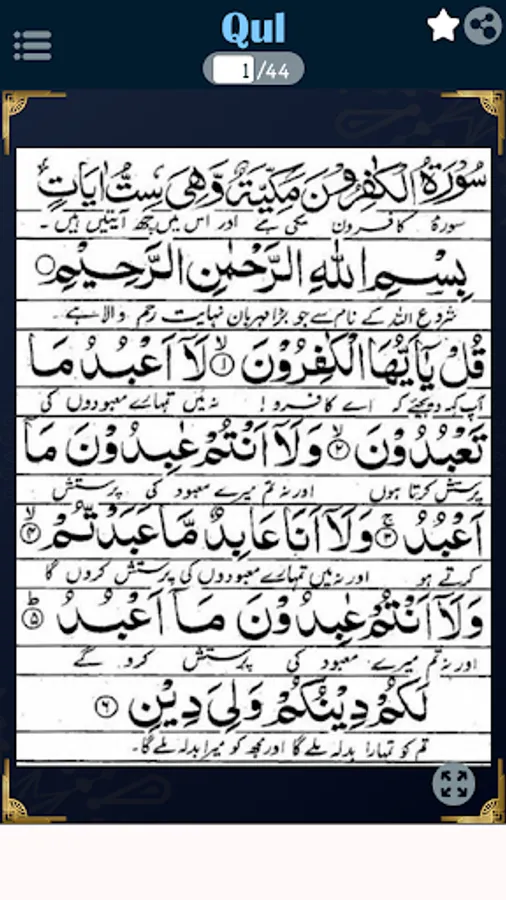 Qul
1/44
سُوْرَةُ الْكٰفِرُوْنَ مَكِّيَّةٌ وَّهِىَ سِتُّ اٰيَاتٍ
سورۃ کافرون مکی ہے اور اس میں چھ آیتیں ہیں۔
بِسْمِ اللهِ الرَّحْمٰنِ الرَّحِيْمِ
شروع اللہ کے نام سے جو بڑا مہربان نہایت رحم والا ہے۔
قُلْ يٰٓاَيُّهَا الْكٰفِرُوْنَ ۙ۱ لَآ اَعْبُدُ مَا
آپ کہہ دیجئے کہ اے کافرو! نہ میں تمہارے معبودوں کی
تَعْبُدُوْنَ ۙ۲ وَلَآ اَنْتُمْ عٰبِدُوْنَ مَآ
پرستش کرتا ہوں اور نہ تم میرے معبود کی پرستش
اَعْبُدُ ۚ۳ وَلَآ اَنَا عَابِدٌ مَّا عَبَدْتُّمْ ۙ۴
کرتے ہو اور نہ میں تمہارے معبودوں کی پرستش کروں گا
وَلَآ اَنْتُمْ عٰبِدُوْنَ مَآ اَعْبُدُ ؕ۵
اور نہ تم میرے معبود کی پرستش کرو گے
لَكُمْ دِيْنُكُمْ وَلِيَ دِيْنِ ۶
تم کو تمہارا بدلہ ملے گا اور مجھ کو میرا بدلہ ملے گا۔